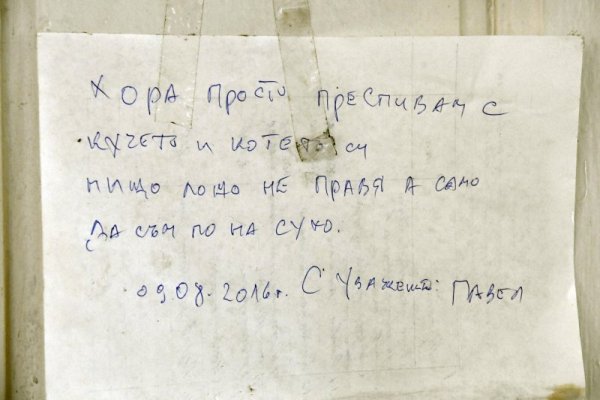 ХОРА ПРОСТО ПРЕСПИВАМ С
КУЧЕТО И КОТЕТО СИ
НИЩО ЛОШО НЕ ПРАВЯ А САМО
ДА СЪМ ПО НА СУХО.
09.08.2016г. С УВАЖЕНИЕ: ПАВЕЛ